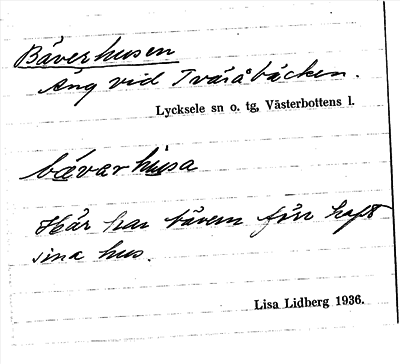 Bäverhusen
Äng vid Tväråbäcken.
Lycksele sn o. tg, Västerbottens l.
bävarhusa
Här har bävern förr haft
sina hus.
Lisa Lidberg 1936.